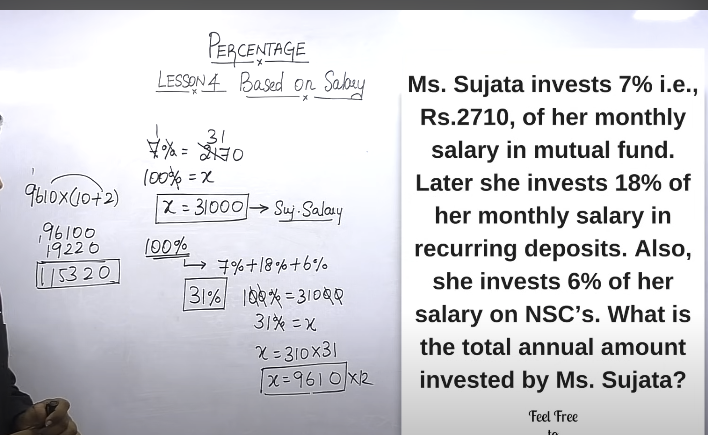 PERCENTAGE
LESSON 4 Based on Salary
7% = 2170
31
100% = x
x = 31000 → Suj. Salary
100%
→ 7%+18%+6%
31%
100% = 31000
31% = x
x = 310×31
x = 9610 ×12
1
9610×(10+2)
96100
19220
115320
Ms. Sujata invests 7% i.e.,
Rs.2710, of her monthly
salary in mutual fund.
Later she invests 18% of
her monthly salary in
recurring deposits. Also,
she invests 6% of her
salary on NSC’s. What is
the total annual amount
invested by Ms. Sujata?
Feel Free
to